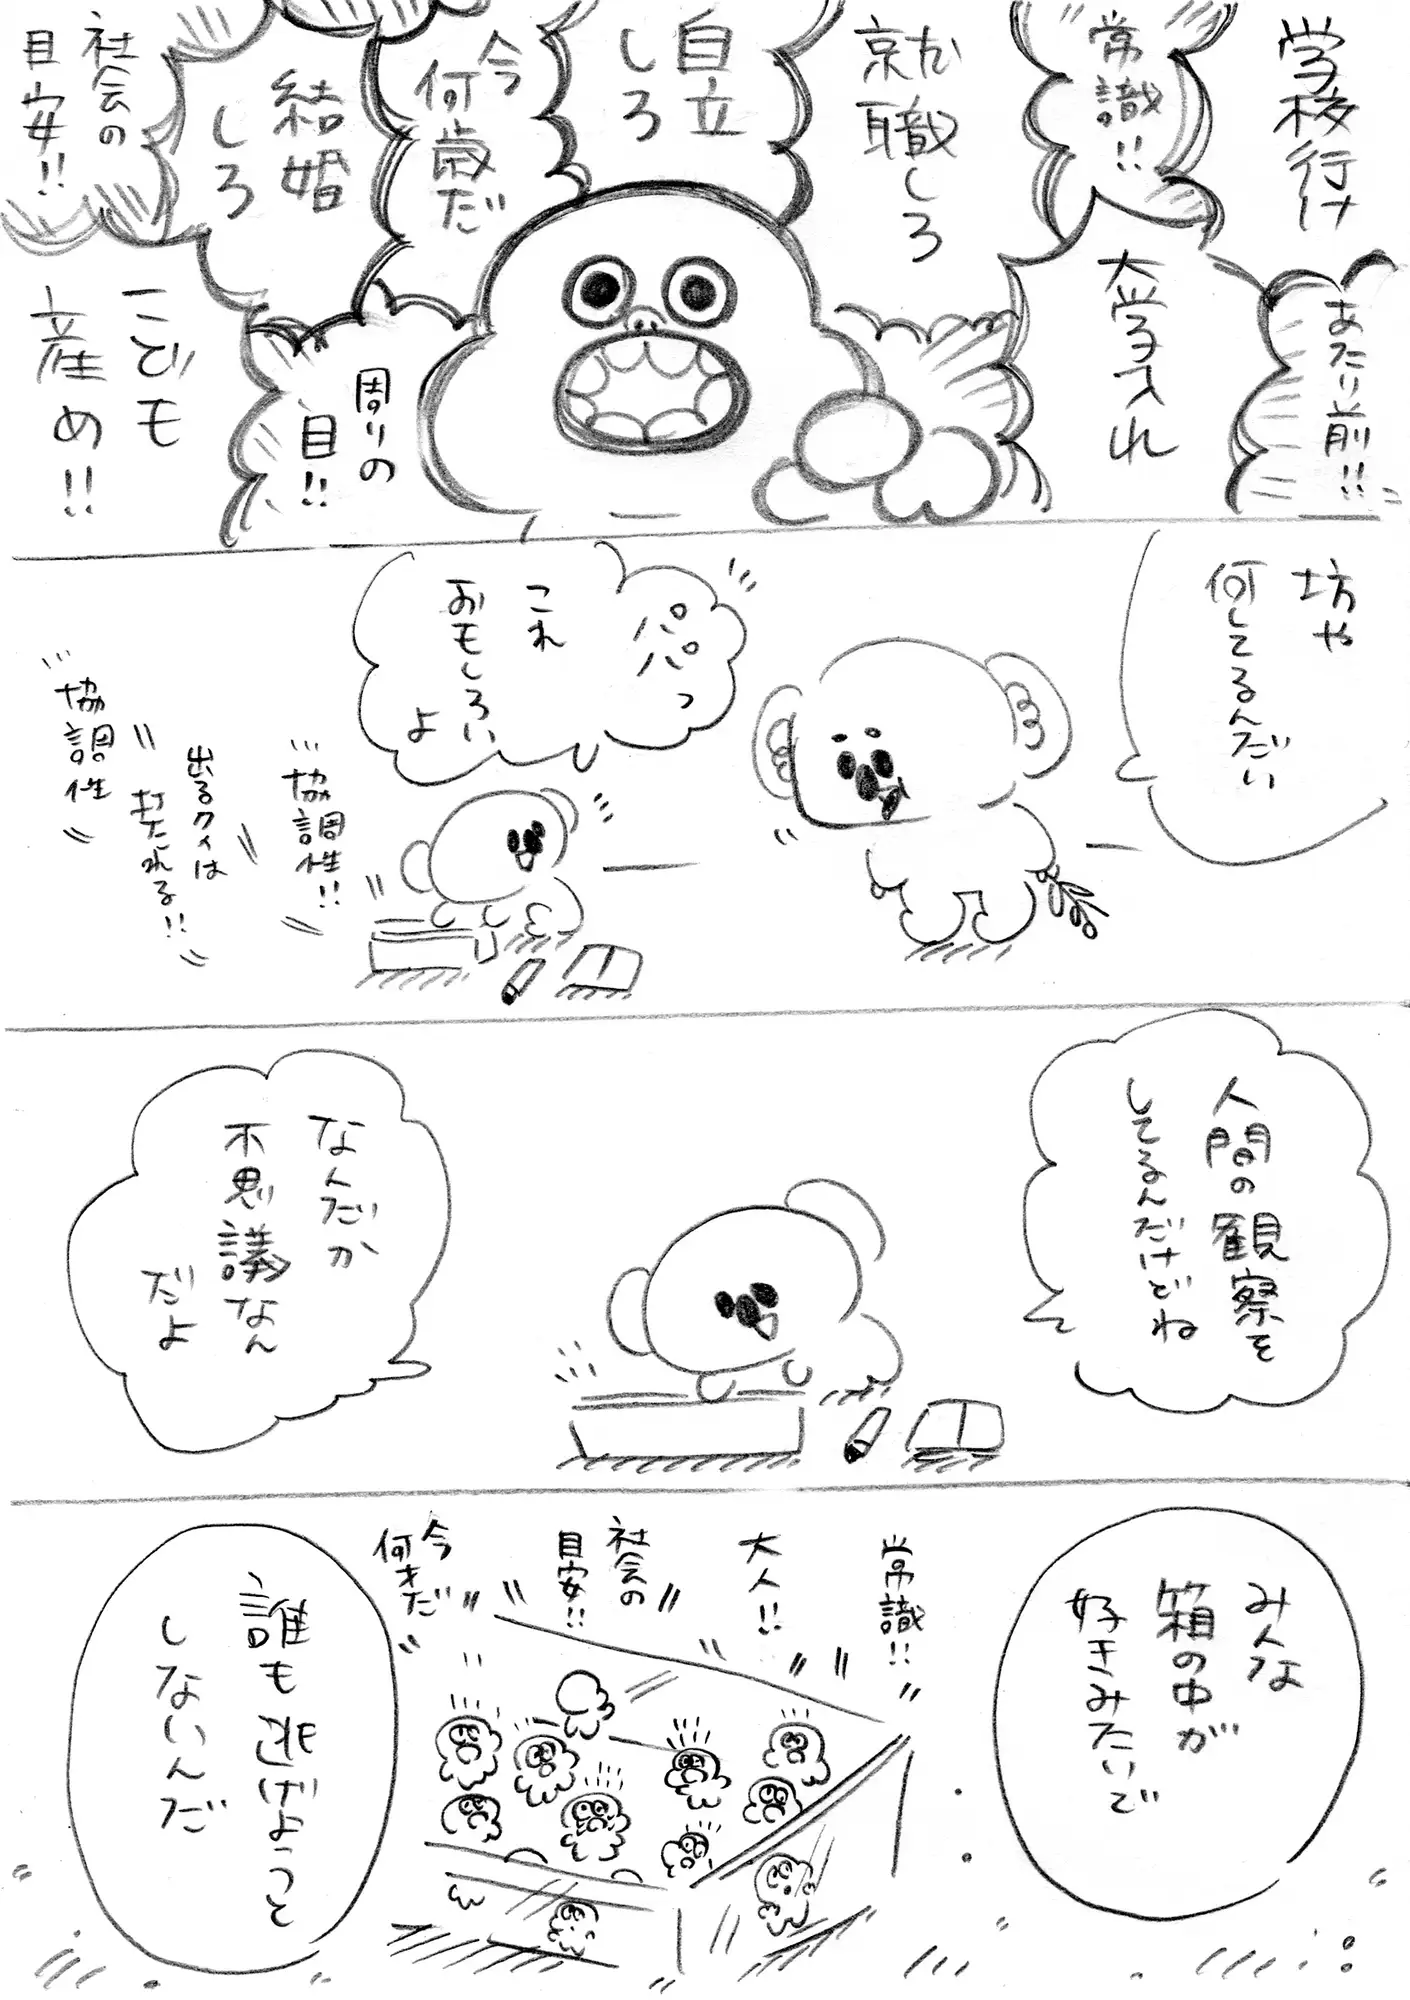 学校行け
あたり前!!
常識!!
大学入れ
就職しろ
自立
しろ
今
何歳だ
周りの
目!!
結婚
しろ
社会の
目安!!
こども
産め!!
坊や
何してるんだい
パパっ
これ
おもしろい
よ
協調性!!
出るクイは
打たれる!!
協調性
人間の観察を
してるんだけどね
なんだか
不思議なん
だよ
みんな
箱の中が
好きみたいで
常識!!
大人!!
社会の
目安!!
今
何才だ
誰も逃げようと
しないんだ